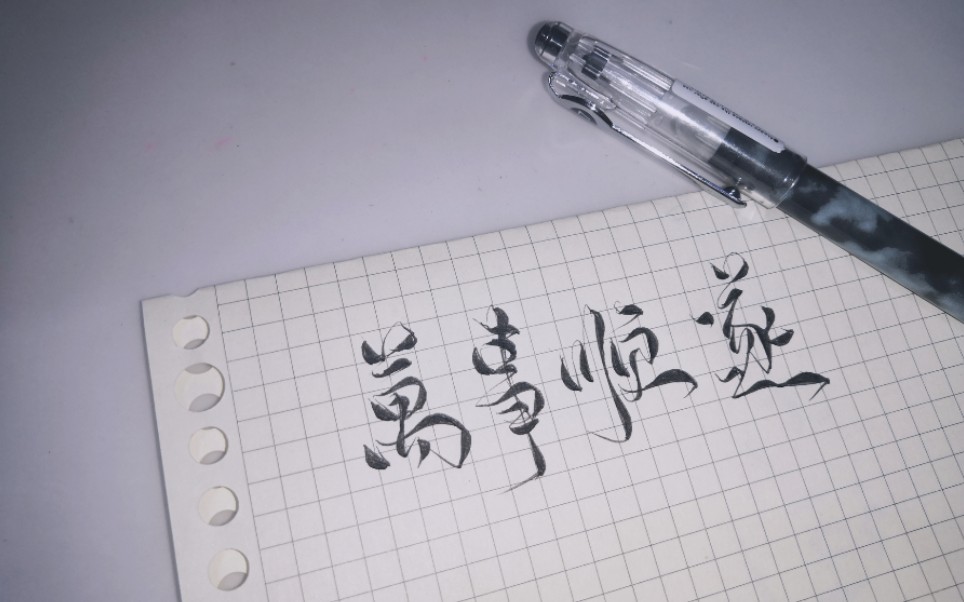 萬事順遂